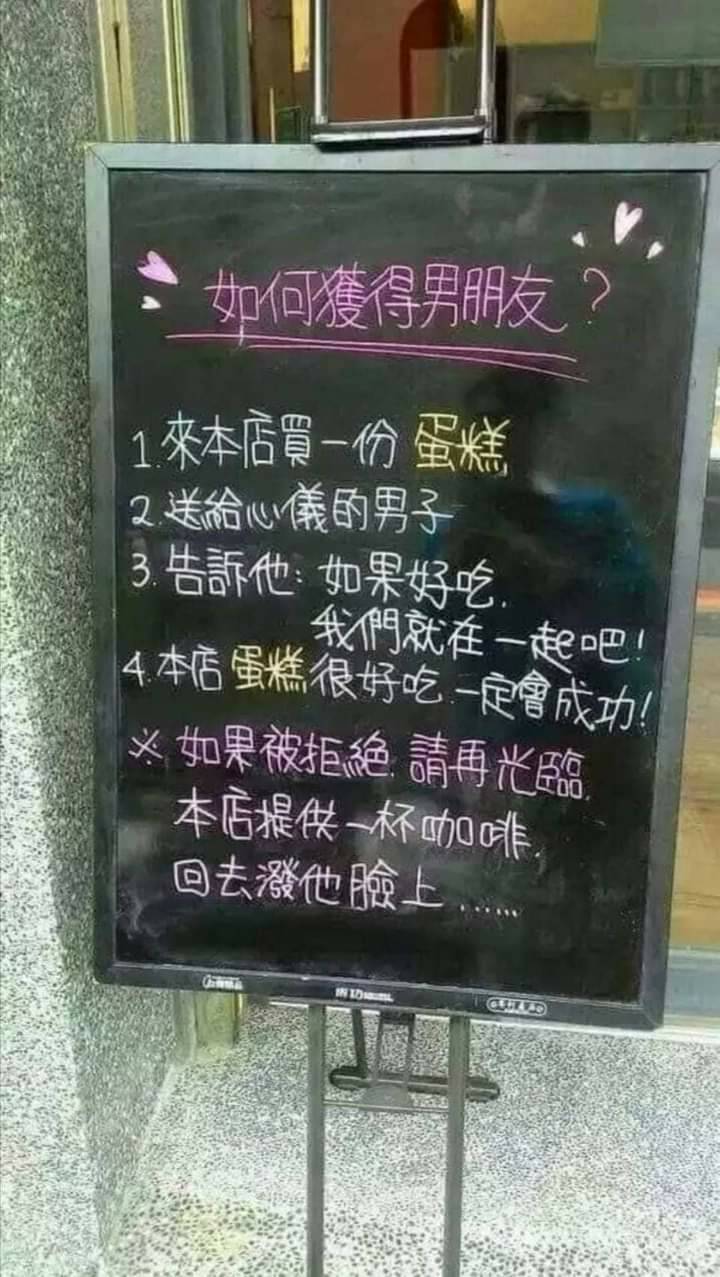 如何獲得男朋友?
1.來本店買一份 蛋糕
2.送給心儀的男子
3.告訴他:如果好吃.
我們就在一起吧!
4.本店蛋糕很好吃.一定會成功!
※如果被拒絕.請再光臨.
本店提供一杯咖啡.
回去潑他臉上......